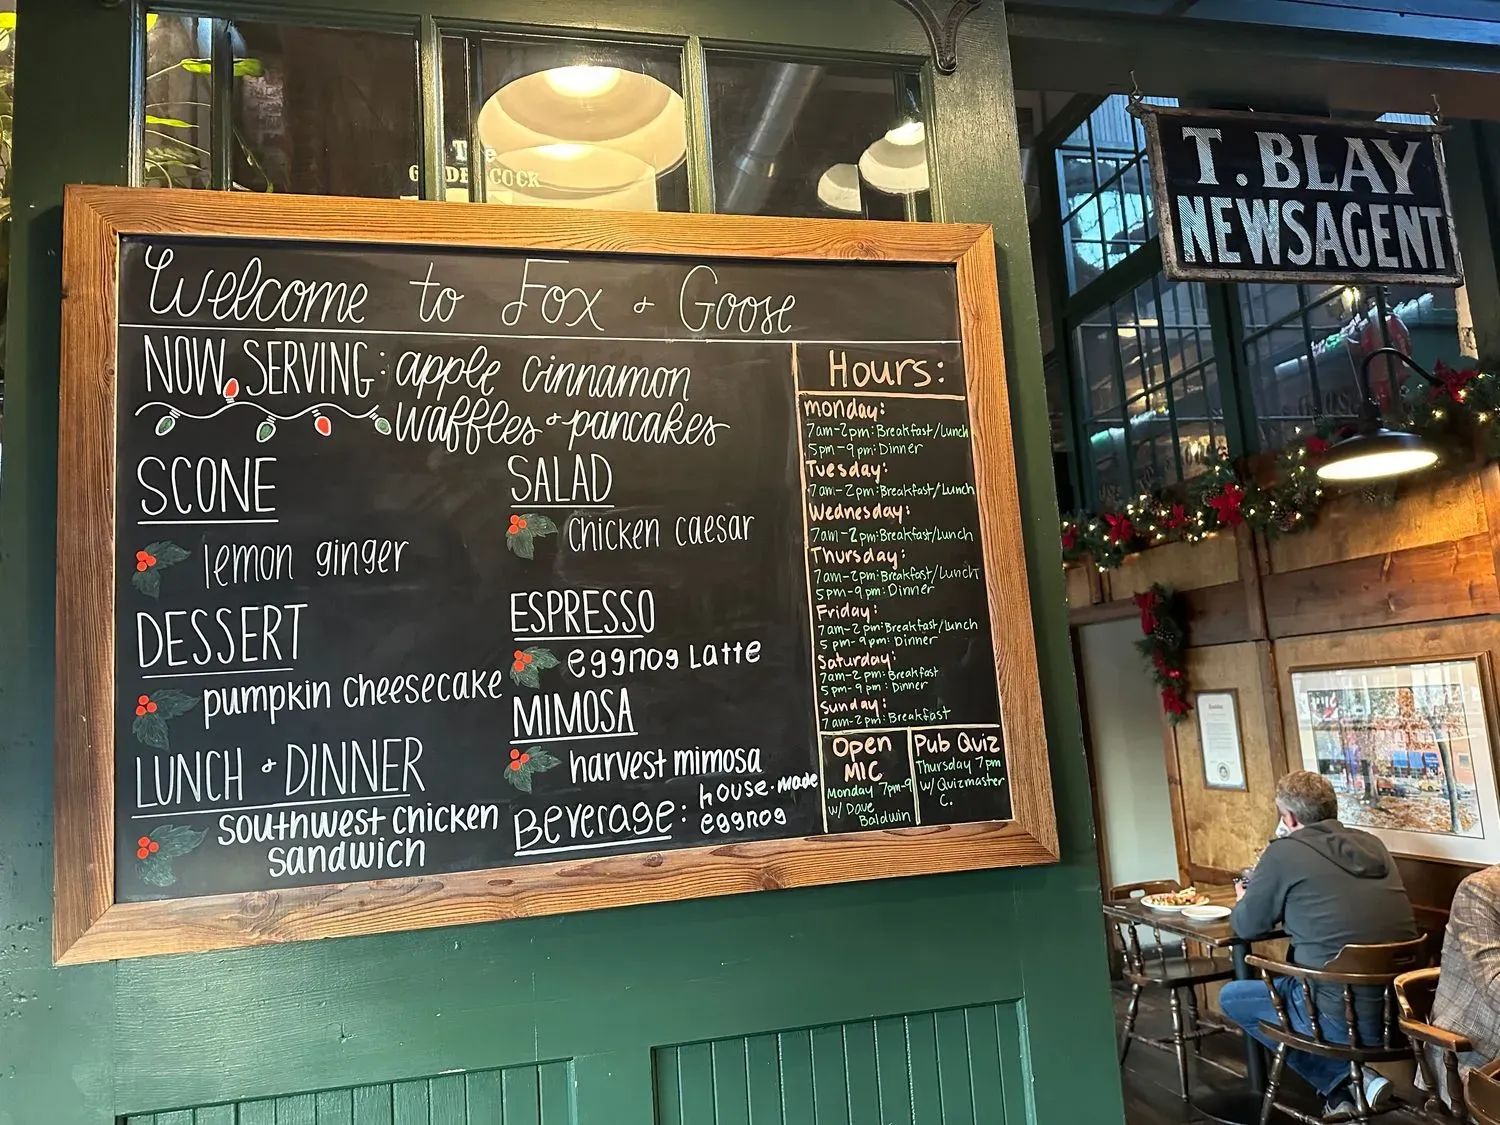 The
COCK
T. BLAY
NEWSAGENT
Welcome to Fox & Goose
NOW SERVING: apple cinnamon
waffles & pancakes
SCONE
lemon ginger
DESSERT
pumpkin cheesecake
LUNCH & DINNER
southwest chicken
sandwich
SALAD
chicken caesar
ESPRESSO
eggnog Latte
MIMOSA
harvest mimosa
Beverage: house-made
eggnog
Hours:
monday:
7am-2pm: Breakfast/Lunch
5pm-9pm: Dinner
Tuesday:
7am-2pm: Breakfast/Lunch
Wednesday:
7am-2pm: Breakfast/Lunch
Thursday:
7am-2pm: Breakfast/Lunch
5pm-9pm: Dinner
Friday:
7am-2pm: Breakfast/Lunch
5pm-9pm: Dinner
Saturday:
7am-2pm: Breakfast
5pm-9pm: Dinner
Sunday:
7am-2pm: Breakfast
Open
MIC
Monday 7pm-9
w/ Dave
Baldwin
Pub Quiz
Thursday 7pm
w/ Quizmaster
C.